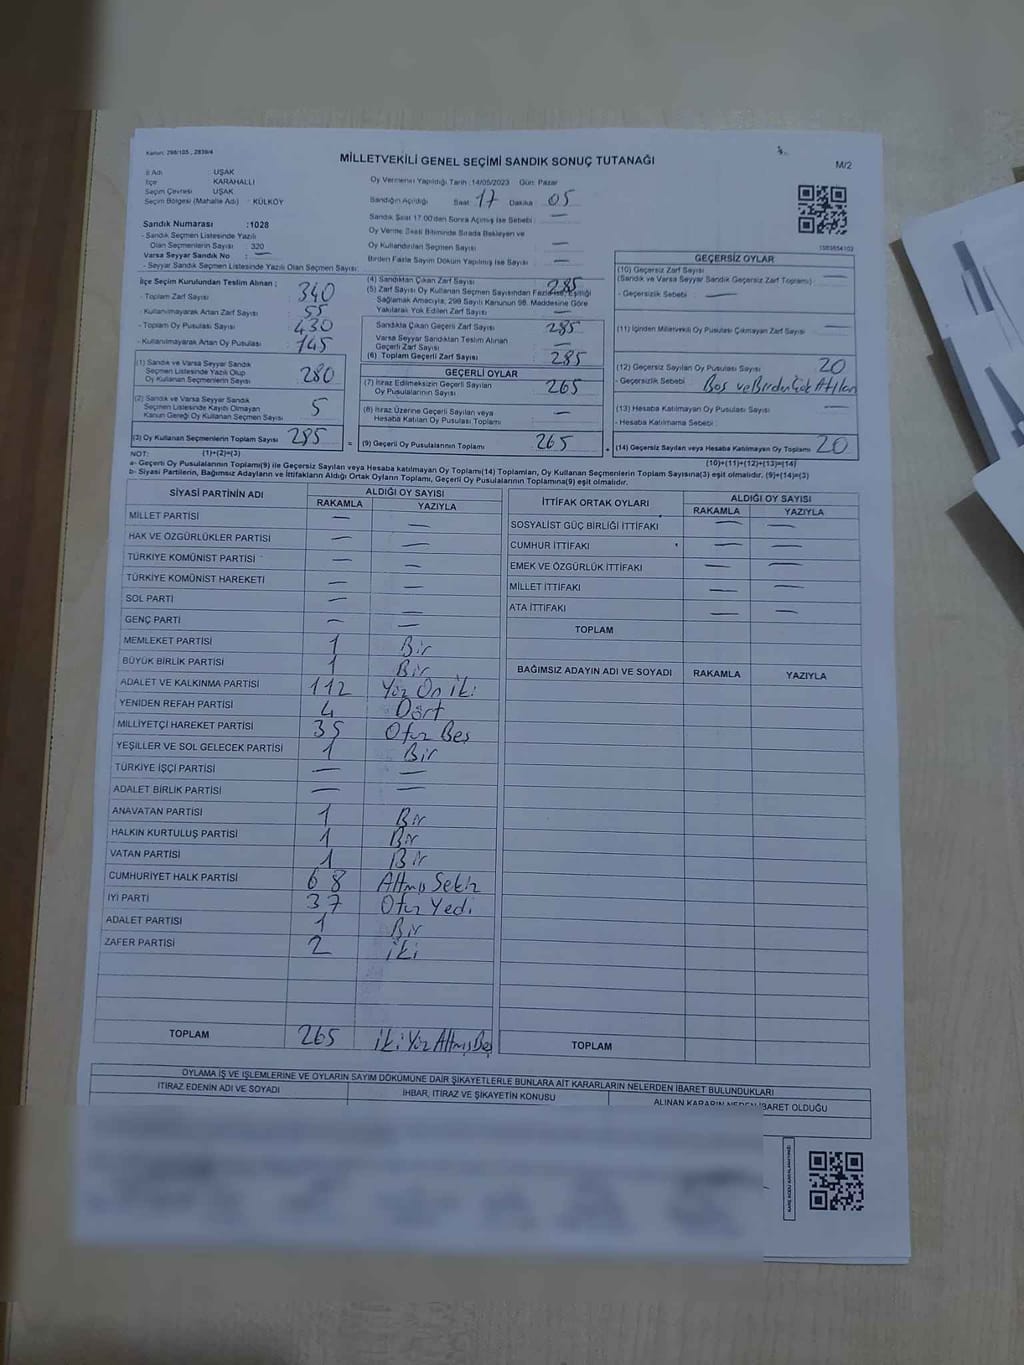 Kanun: 298/105 , 2839/4
MİLLETVEKİLİ GENEL SEÇİMİ SANDIK SONUÇ TUTANAĞI
M/2
İl Adı UŞAK
İlçe KARAHALLI
Seçim Çevresi UŞAK
Seçim Bölgesi (Mahalle Adı) : KÜLKÖY
Sandık Numarası :1028
- Sandık Seçmen Listesinde Yazılı
Olan Seçmenlerin Sayısı : 320
Varsa Seyyar Sandık No : —
- Seyyar Sandık Seçmen Listesinde Yazılı Olan Seçmen Sayısı:
Oy Vermenin Yapıldığı Tarih :14/05/2023 Gün: Pazar
Sandığın Açıldığı Saat 17 Dakika 05
Sandık Saat 17.00'den Sonra Açılmış İse Sebebi : —
Oy Verme Saati Bitiminde Sırada Bekleyen ve
Oy Kullandırılan Seçmen Sayısı : —
Birden Fazla Sayım Döküm Yapılmış İse Sayısı : —
İlçe Seçim Kurulundan Teslim Alınan ;
- Toplam Zarf Sayısı : 340
- Kullanılmayarak Artan Zarf Sayısı : 55
- Toplam Oy Pusulası Sayısı : 430
- Kullanılmayarak Artan Oy Pusulası : 145
(1) Sandık ve Varsa Seyyar Sandık
Seçmen Listesinde Yazılı Olup
Oy Kullanan Seçmenlerin Sayısı : 280
(2) Sandık ve Varsa Seyyar Sandık
Seçmen Listesinde Kaydı Olmayan
Kanun Gereği Oy Kullanan Seçmen Sayısı : 5
(3) Oy Kullanan Seçmenlerin Toplam Sayısı : 285
(4) Sandıktan Çıkan Zarf Sayısı : 285
(5) Zarf Sayısı Oy Kullanan Seçmen Sayısından Fazla İse, Eşitliği
Sağlamak Amacıyla, 298 Sayılı Kanunun 98. Maddesine Göre
Yakılarak Yok Edilen Zarf Sayısı : —
Sandıkta Çıkan Geçerli Zarf Sayısı : 285
Varsa Seyyar Sandıktan Teslim Alınan
Geçerli Zarf Sayısı : —
(6) Toplam Geçerli Zarf Sayısı : 285
GEÇERLİ OYLAR
(7) İtiraz Edilmeksizin Geçerli Sayılan
Oy Pusulalarının Sayısı : 265
(8) İtiraz Üzerine Geçerli Sayılan veya
Hesaba Katılan Oy Pusulası Toplamı : —
= (9) Geçerli Oy Pusulalarının Toplamı : 265
GEÇERSİZ OYLAR
(10) Geçersiz Zarf Sayısı
(Sandık ve Varsa Seyyar Sandık Geçersiz Zarf Toplamı) : —
- Geçersizlik Sebebi : —
(11) İçinden Milletvekili Oy Pusulası Çıkmayan Zarf Sayısı : —
(12) Geçersiz Sayılan Oy Pusulası Sayısı : 20
- Geçersizlik Sebebi : Boş ve Birden Çok Atılan
(13) Hesaba Katılmayan Oy Pusulası Sayısı : —
- Hesaba Katılmama Sebebi :
+ (14) Geçersiz Sayılan veya Hesaba Katılmayan Oy Toplamı : 20
NOT: (1)+(2)=(3)
(10)+(11)+(12)+(13)=(14)
a- Geçerli Oy Pusulalarının Toplamı(9) ile Geçersiz Sayılan veya Hesaba katılmayan Oy Toplamı(14) Toplamları, Oy Kullanan Seçmenlerin Toplam Sayısına(3) eşit olmalıdır. (9)+(14)=(3)
b- Siyasi Partilerin, Bağımsız Adayların ve İttifakların Aldığı Ortak Oyların Toplamı, Geçerli Oy Pusulalarının Toplamına(9) eşit olmalıdır.
SİYASİ PARTİNİN ADI ALDIĞI OY SAYISI
RAKAMLA YAZIYLA
MİLLET PARTİSİ — —
HAK VE ÖZGÜRLÜKLER PARTİSİ — —
TÜRKİYE KOMÜNİST PARTİSİ — —
TÜRKİYE KOMÜNİST HAREKETİ — —
SOL PARTİ — —
GENÇ PARTİ — —
MEMLEKET PARTİSİ 1 Bir
BÜYÜK BİRLİK PARTİSİ 1 Bir
ADALET VE KALKINMA PARTİSİ 112 Yüz On iki
YENİDEN REFAH PARTİSİ 4 Dört
MİLLİYETÇİ HAREKET PARTİSİ 35 Otuz Beş
YEŞİLLER VE SOL GELECEK PARTİSİ 1 Bir
TÜRKİYE İŞÇİ PARTİSİ — —
ADALET BİRLİK PARTİSİ — —
ANAVATAN PARTİSİ 1 Bir
HALKIN KURTULUŞ PARTİSİ 1 Bir
VATAN PARTİSİ 1 Bir
CUMHURİYET HALK PARTİSİ 68 Altmış Sekiz
İYİ PARTİ 37 Otuz Yedi
ADALET PARTİSİ 1 Bir
ZAFER PARTİSİ 2 iki
TOPLAM 265 iki Yüz Altmış Beş
İTTİFAK ORTAK OYLARI ALDIĞI OY SAYISI
RAKAMLA YAZIYLA
SOSYALİST GÜÇ BİRLİĞİ İTTİFAKI — —
CUMHUR İTTİFAKI — —
EMEK VE ÖZGÜRLÜK İTTİFAKI — —
MİLLET İTTİFAKI — —
ATA İTTİFAKI — —
TOPLAM
BAĞIMSIZ ADAYIN ADI VE SOYADI RAKAMLA YAZIYLA
TOPLAM
OYLAMA İŞ VE İŞLEMLERİNE VE OYLARIN SAYIM DÖKÜMÜNE DAİR ŞİKAYETLERLE BUNLARA AİT KARARLARIN NELERDEN İBARET BULUNDUKLARI
İTİRAZ EDENİN ADI VE SOYADI İHBAR, İTİRAZ VE ŞİKAYETİN KONUSU ALINAN KARARIN NEDEN İBARET OLDUĞU